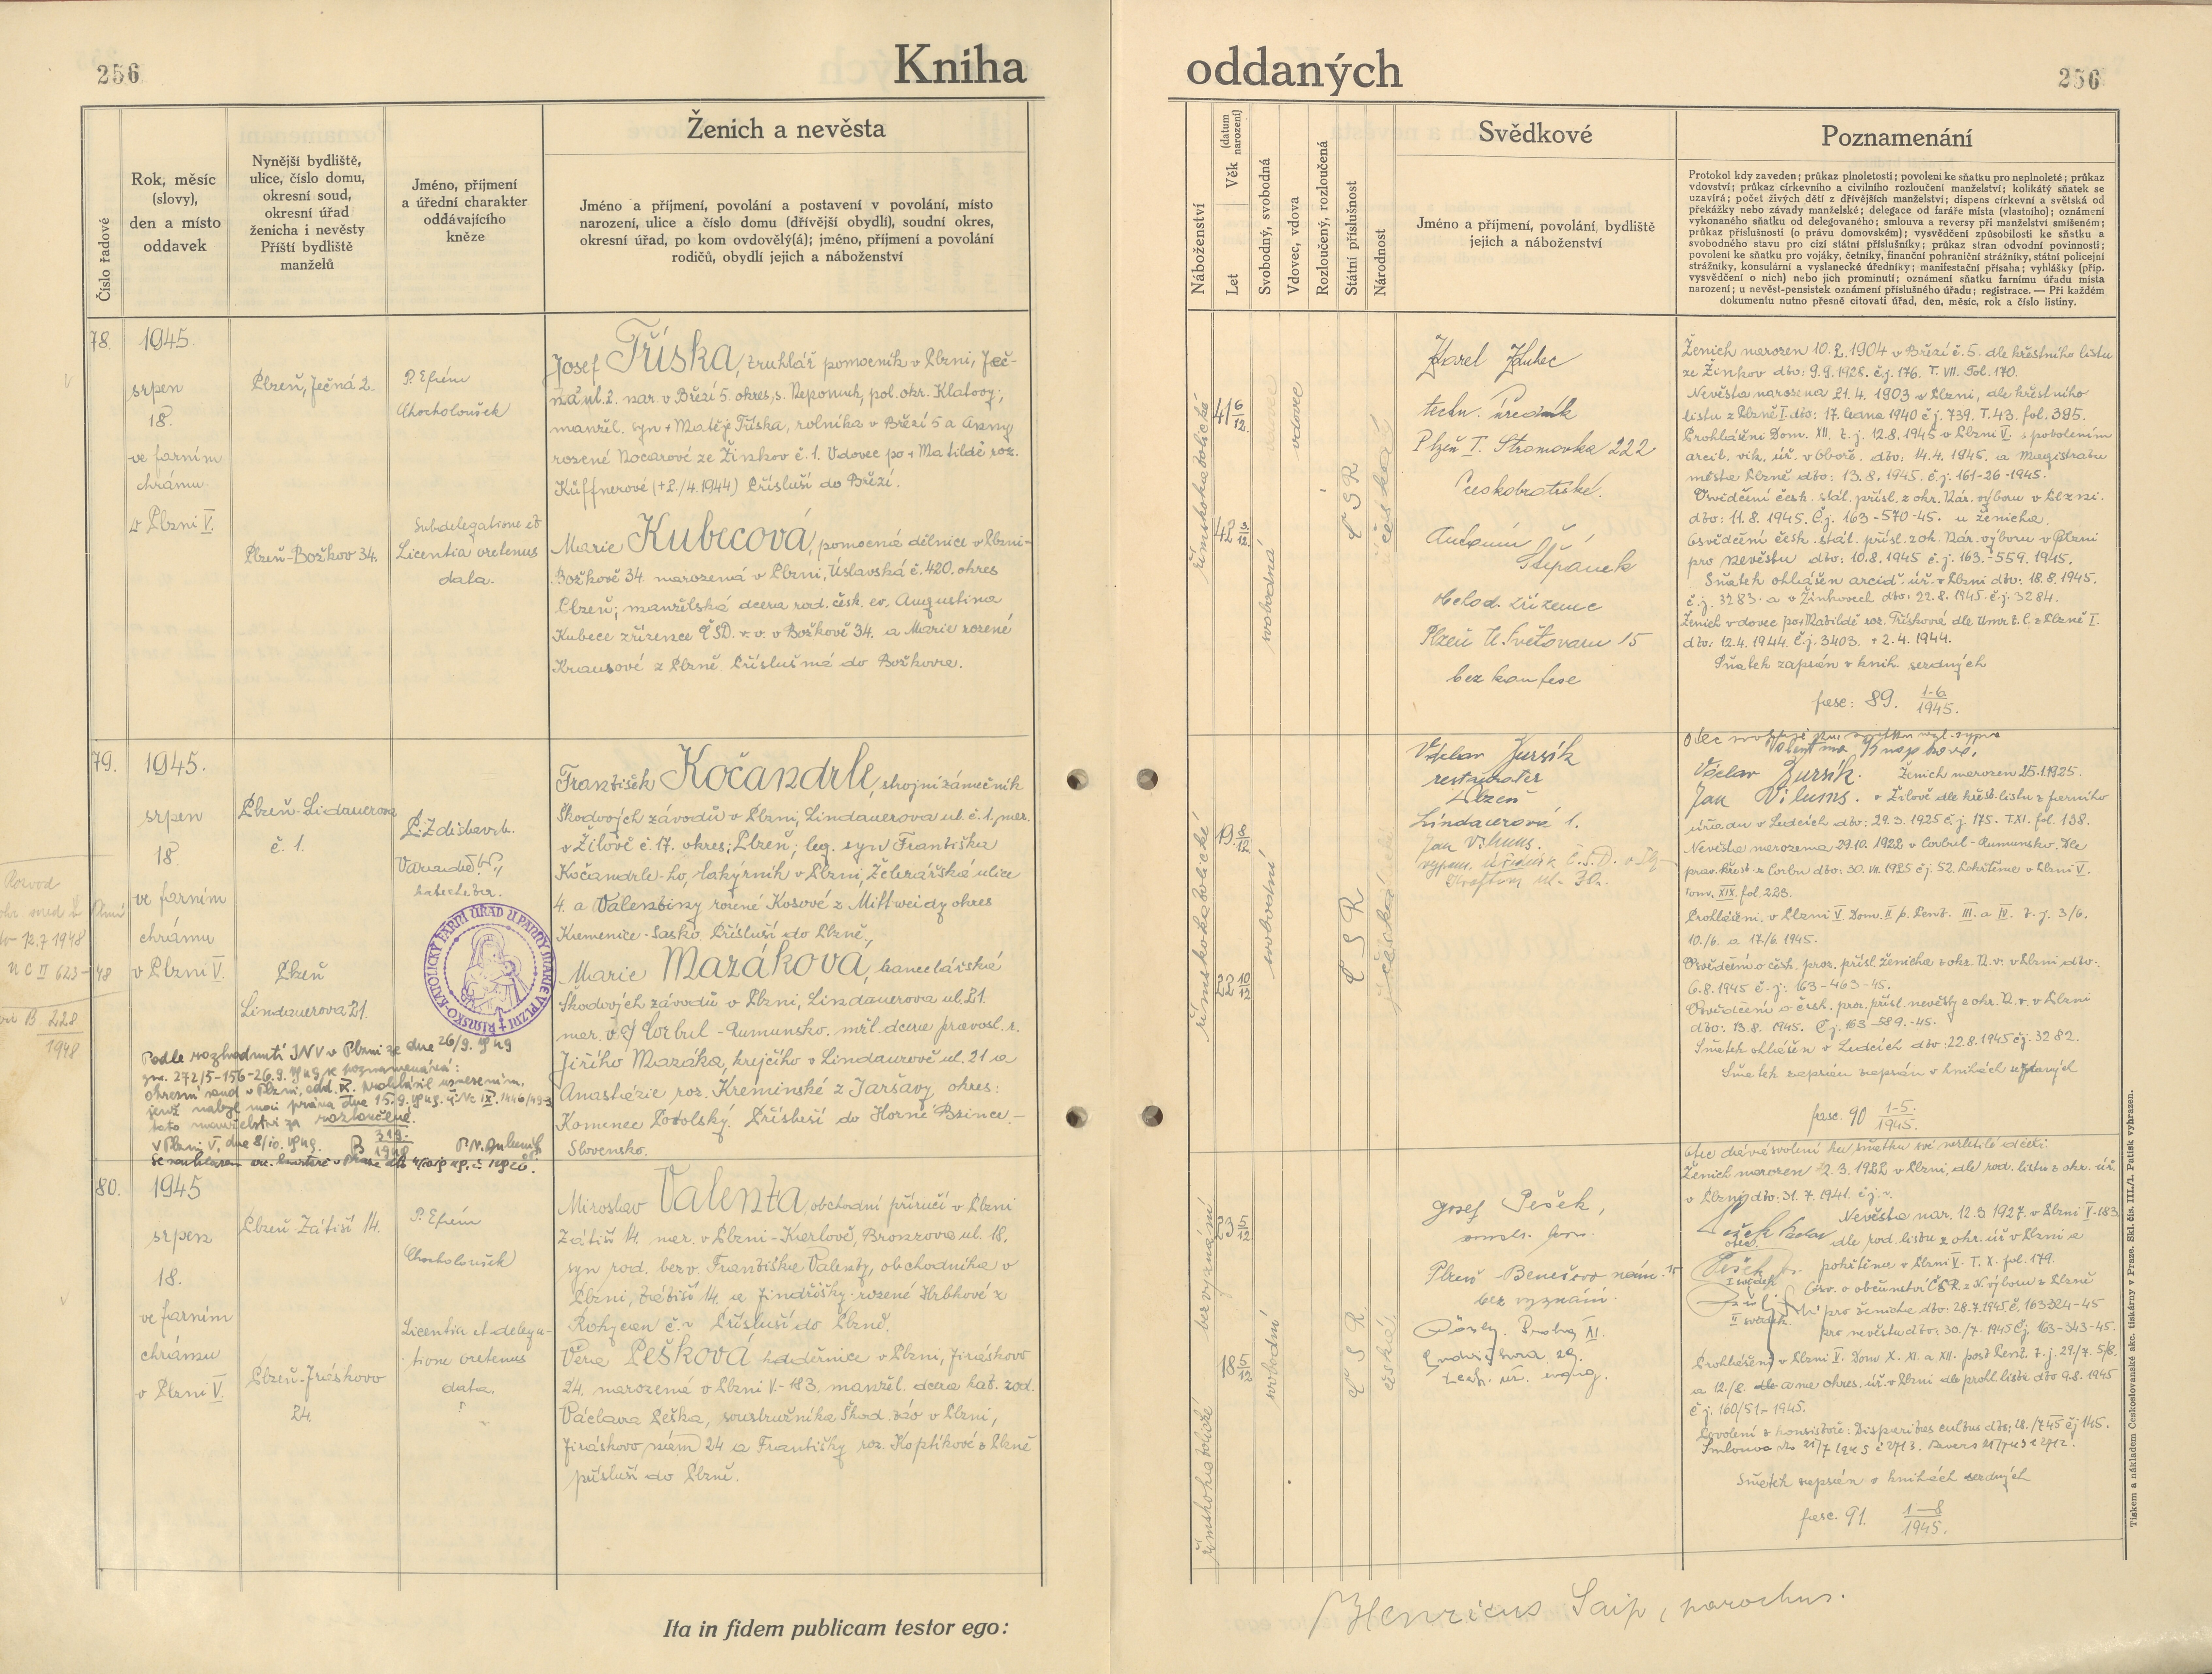 256
Kniha
Číslo řadové
Rok, měsíc
(slovy),
den a místo
oddavek
Nynější bydliště,
ulice, číslo domu,
okresní soud,
okresní úřad
ženicha i nevěsty
Příští bydliště
manželů
Jméno, příjmení
a úřední charakter
oddávajícího
kněze
Ženich a nevěsta
Jméno a příjmení, povolání a postavení v povolání, místo
narození, ulice a číslo domu (dřívější obydlí), soudní okres,
okresní úřad, po kom ovdovělý(á); jméno, příjmení a povolání
rodičů, obydlí jejich a náboženství
78.
1945.
srpen
18.
ve farním
chrámu
v Plzni V.
Plzeň, Ječná 2.
Plzeň-Božkov 34.
P. Efrém
Chocholoušek
Subdelegatione et
Licentia vretenus
data.
Josef Tříska, truhlář pomocník v Plzni, Ječ-
ná ul. 2. nar. v Březí 5. okres, s. Nepomuk, pol. okr. Klatovy;
manžel. syn + Matěje Tříska, rolníka v Březí 5 a Anny
rozené Nocarové ze Žinkov č. 1. Vdovec po + Matildě roz.
Küffnerové (+2./4.1944) Přísluší do Březí.
Marie Kubecová, pomocná dělnice v Plzni-
Božkově 34. narozená v Plzni, Úslavská č. 420. okres
Plzeň; manželská dcera rod. česk. ev. Augustina
Kubece zřízence ČSD. v. v. v Božkově 34. a Marie rozené
Krausové z Plzně. Příslušná do Božkova.
79.
1945.
srpen
18.
ve farním
chrámu
v Plzni V.
Plzeň-Lidauerova
č. 1.
Plzeň
Lindauerova 21.
P. Zdislav
katecheta.
ŘÍMSKO-KATOLICKÝ FARNÍ ÚŘAD U PANNY MARIE V PLZNI
František Kočandrle, strojní zámečník
Škodových závodů v Plzni, Lindauerova ul. č. 1. nar.
v Žilově č. 17. okres: Plzeň; leg. syn Františka
Kočandrle-ho, lakýrník v Plzni, Železářská ulice
4. a Valentiny rozené Kosové z Mittweidy okres
Kamenice-Sasko. Přísluší do Plzně.
Marie Mazáková, kancelářská
Škodových závodů v Plzni, Lindauerova ul. 21.
nar. v Corbul-Rumunsko. mžl. dcera pravosl. r.
Jiřího Mazáka, krejčího v Lindaurově ul. 21 a
Anastázie roz. Kreminské z Jaršavy okres:
Kamenec Podolský. Přísluší do Horné Bzince.-
Slovensko.
Rozvod
12.7 1948
B 228
1948
Podle rozhodnutí JNV v Plzni ze dne 26/9. 1949
zn. 272/5-156-26.9. 1949 se poznamenává:
okresní soud v Plzni, odd. IX. prohlásil usnesením,
jenž nabyl moci práva dne 15.9. 1949. č. Nc IX. 1446/49-3
toto manželství za rozloučené.
V Plzni V, dne 8/10. 1949.
80.
1945
srpen
18.
ve farním
chrámu
v Plzni V.
Plzeň-Zátiší 14.
Plzeň-Jiráskovo
24.
P. Efrém
Chocholoušek
Licentia et delega-
tione vretenus
data.
Miroslav Valenta, obchodní příručí v Plzni
Zátiší 14. nar. v Plzni-Karlově, Brožkova ul. 18.
syn rod. bezv. Františka Valenty, obchodníka v
Plzni, Zátiší 14. a Jindřišky rozené Hrbkové z
Rokycan č. v Přísluší do Plzně.
Věra Pešková, v Plzni, Jiráskovo
24. narozená v Plzni V.-183. manžel. dcera kat. rod.
Václava Peška, soustružníka Škod. záv. v Plzni,
Jiráskovo nám 24 a Františky roz. Koptíkové z Plzně
přísluší do Plzně.
Ita in fidem publicam testor ego:
oddaných
256
Náboženství
Věk (datum narození)
Let
Svobodný, svobodná
Vdovec, vdova
Rozloučený, rozloučená
Státní příslušnost
Národnost
Svědkové
Jméno a příjmení, povolání, bydliště
jejich a náboženství
Poznamenání
Protokol kdy zaveden; průkaz plnoletosti; povolení ke sňatku pro neplnoleté; průkaz
vdovství; průkaz církevního a civilního rozloučení manželství; kolikátý sňatek se
uzavírá; počet živých dětí z dřívějších manželství; dispens církevní a světská od
překážky nebo závady manželské; delegace od faráře místa (vlastního); oznámení
vykonaného sňatku od delegovaného; smlouva a reversy při manželství smíšeném;
průkaz příslušnosti (o právu domovském); vysvědčení způsobilosti ke sňatku a
svobodného stavu pro cizí státní příslušníky; průkaz stran odvodní povinnosti;
povolení ke sňatku pro vojáky, četníky, finanční pohraniční strážníky, státní policejní
strážníky, konsulární a vyslanecké úředníky; manifestační přísaha; vyhlášky (příp.
vysvědčení o nich) nebo jich prominutí; oznámení sňatku farnímu úřadu místa
narození; u nevěst-pensistek oznámení příslušného úřadu; registrace. — Při každém
dokumentu nutno přesně citovati úřad, den, měsíc, rok a číslo listiny.
římskokatolické
41 6/12
42 3/12
svobodná
vdovec
Č S R
česká
Karel Kubec
techn. úředník
Plzeň I. Stromovka 222
Českobratrské.
Antonín
Štěpánek
obchod. zřízenec
Plzeň U. Světovaru 15
bez konfese
Ženich narozen 10.2.1904 v Březí č. 5. dle křestního listu
ze Žinkov dto: 9.9.1928. č.j. 176. T. VII. Fol. 170.
Nevěsta narozena 21.4.1903 v Plzni, dle křestního
listu z Plzně I. dto: 17. ledna 1940 č.j. 739. T. 43. fol. 395.
Prohlášení Dom. XII. t. j. 12.8.1945 v Plzni V. s povolením
arcib. vik. úř. v Oboře. dto: 14.4.1945. a Magistratu
města Plzně dto: 13.8.1945. č.j. 161-26-1945.
Osvědčení česk. stát. přísl. z okr. Nár. výboru v Plzni.
dto: 11.8.1945. Č.j. 163-570-45. u ženicha.
Osvědčení česk. stát. přísl. z ok. Nár. výboru v Plzni
pro nevěstu dto: 10.8.1945 č.j. 163.-559. 1945.
Sňatek ohlášen arcid. úř. v Plzni dto: 18.8.1945.
č.j. 3283. a v Žinkovech dto: 22.8.1945. č.j. 3284.
Ženich vdovec po + Matildě roz. Třísková dle Úmr. l. č. z Plzně I.
dto: 12.4.1944. č.j. 3403. + 2.4.1944.
Sňatek zapsán v knih. sezdaných
fasc: 89. 1-6/1945.
římskokatolické
19 8/12
22 10/12
svobodní
Č S R
česká
Václav Zursík
restauratér
Plzeň
Lindauerova 1.
Jan Vilums.
Otec
Václav Zursík. Ženich narozen 25.1.1925.
Jan Vilums. v Žilově dle křest. listu z farního
úřadu v Ledcích dto: 29.3.1925 č.j. 175. T. XI. fol. 138.
Nevěsta narozena 29.10.1922 v Corbul-Rumunsko. Dle
prav. křest. z Corbu dto: 30. VII. 1925 č.j. 52. Pokřtěna v Plzni V.
tom. XIX. fol. 223.
Prohlášení. v Plzni V. Dom. II p. Pent. III. a IV. t. j. 3/6.
10./6. a 17./6. 1945.
Osvědčení o česk. proz. přísl. ženicha z okr. N. v. v Plzni dto:
6.8.1945 č.j: 163-463-45.
Osvědčení o česk. proz. přísl. nevěsty z okr. N. v. v Plzni
dto: 13.8.1945. Č.j. 163-589.-45.
Sňatek ohlášen v Ledcích dto: 22.8.1945 č.j. 3282.
Sňatek zapsán zapsán v knihách sezdaných
fasc. 90 1-5./1945.
bez vyznání
římskokatolické
23 5/12
18 5/12
svobodní
Č S R
česká
Josef Pešek,
Plzeň - Benešovo nám. 15
bez vyznání.
Praha XI.
Otec dává svolení ku sňatku své nezletilé dceři.
Ženich narozen 2.3.1922 v Plzni, dle rod. listu z okr. úř.
v Plzni dto: 31.7.1941. č.j. v.
Nevěsta nar. 12.3.1927. v Plzni V.-183
Pešek Václav
otec.
dle rod. listu z okr. úř v Plzni a
Pešek
I svědek
pokřtěna v Plzni V. T. X. fol. 179.
Osv. o občanství ČSR. z N. výboru z Plzně
II svědek.
pro ženicha dto: 28.7.1945 č. 163-324-45
pro nevěstu dto: 30./7. 1945 č.j. 163-343-45.
Prohlášení v Plzni V. Dom X. XI. a XII. post Pent. t. j. 29/7. 5/8.
a 12./8. dle a na okres. úř. v Plzni dle prohl. listu dto 9.8.1945
č.j. 160/51-1945.
Povolení z konsistoře: Disparitas cultus dto: 18./7 45 č.j. 145.
Sňatek zapsán v knihách sezdaných
fasc. 91. 1-8/1945.
Henricus Saip, parochus.
Tiskem a nákladem Československé akc. tiskárny v Praze. Skl. čís. III./1. Patisk vyhrazen.